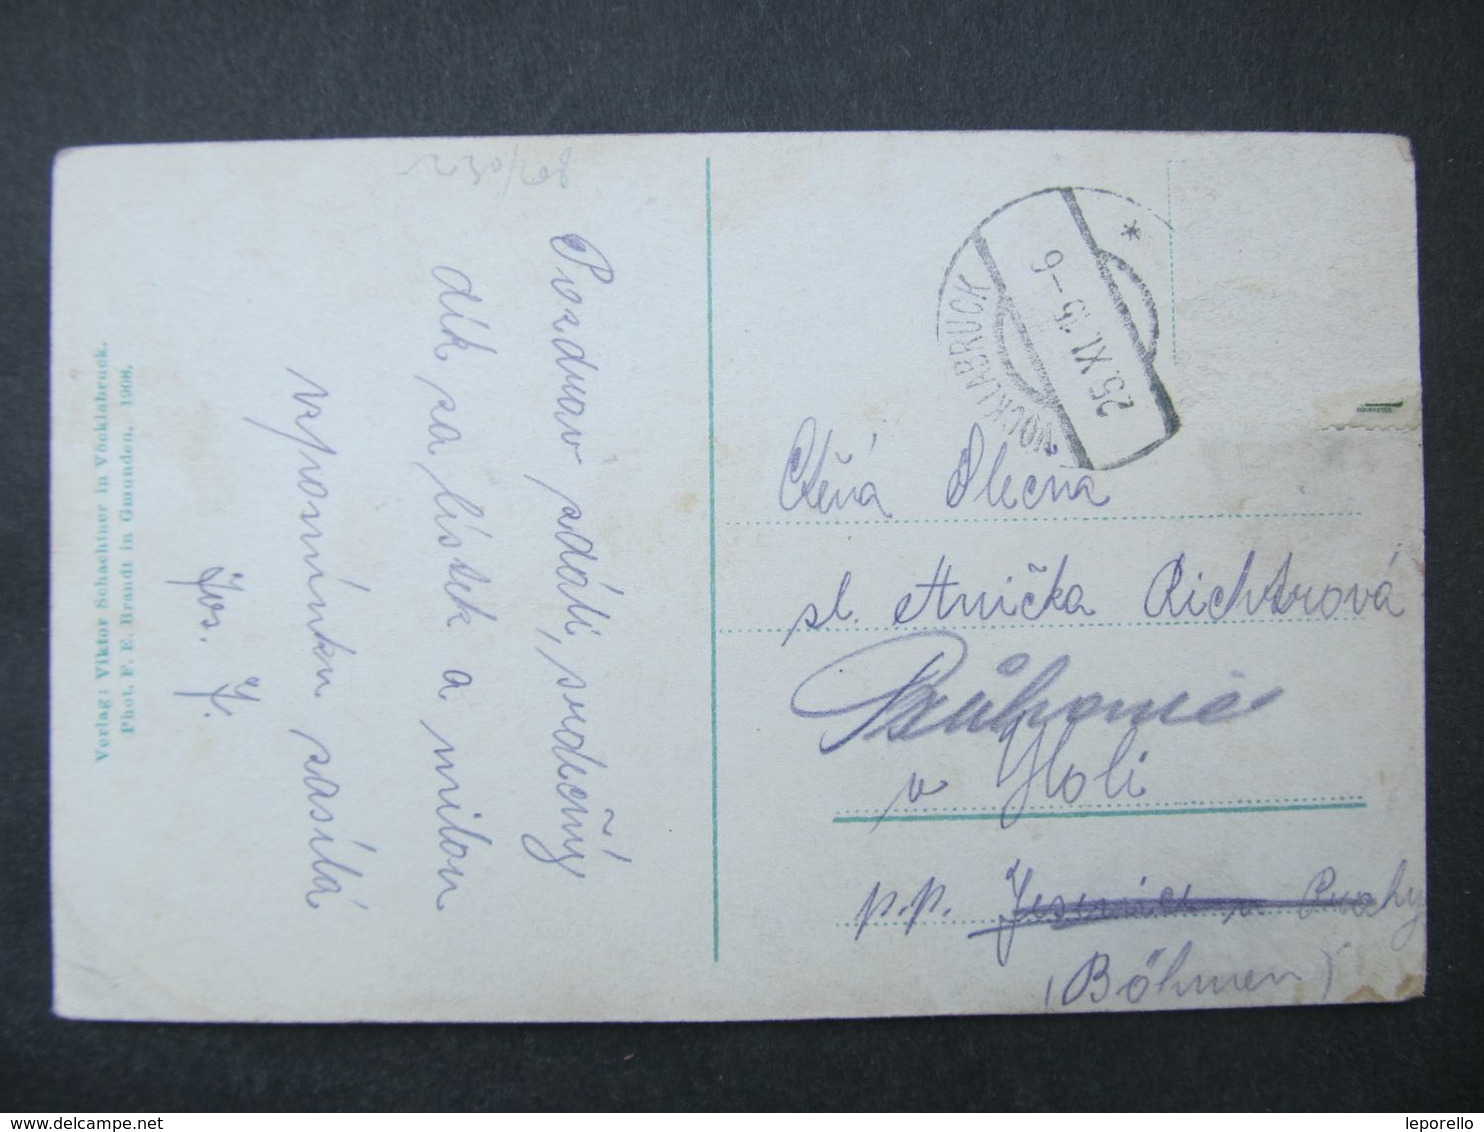 Pozdrav zdáli, srdečný
dík za lístek a milou
vzpomínku zasílá
Jos. J.
Verlag: Viktor Schachtner in Vöcklabruck.
Phot. F. E. Brandt in Gmunden. 1908.
VÖCKLABRUCK
25. XI. 15–6
*
Ctěná Slečna
sl. Anička Richtrová
Průhonic
v Holi
p.p. Jesenice u Prahy
(Böhmen)
leporello